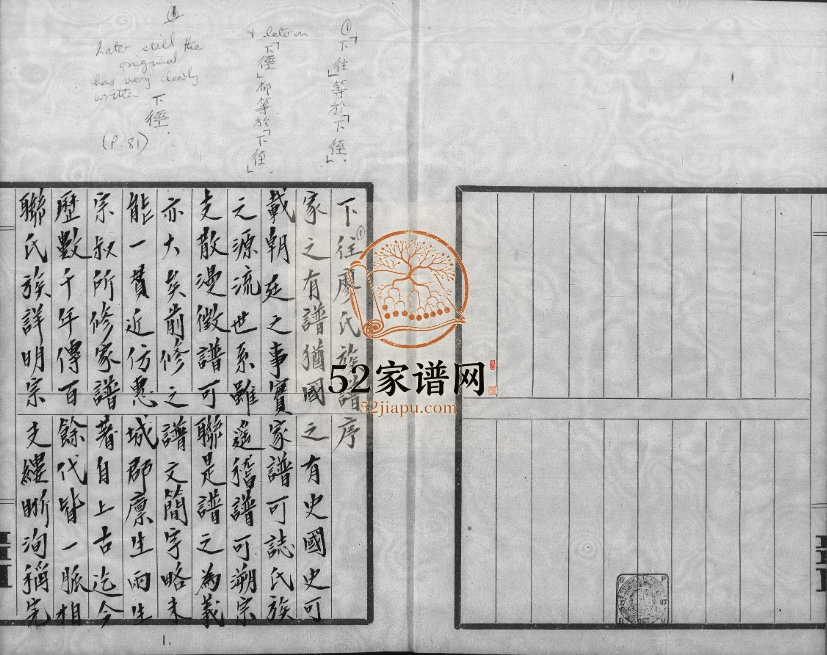 ①
「下往」等於「下徑」.
& later on
「下徑」都等於「下徑」.
Later still the
original
has very clearly
written 下徑.
(P. 81)
下往①廖氏族譜序
家之有譜猶國之有史國史可
載朝廷之事實家譜可誌氏族
之源流世系雖遙稽譜可溯宗
支散漫徵譜可聯是譜之為義
亦大矣前修之譜文簡字略未
能一貫近仿惠城郡廪生雨生
宗叔所修家譜著自上古迄今
歷數千年傳百餘代皆一脈相
聯氏族詳明宗支縷晰洵稱完
1.
52家谱网
52jiapu.com